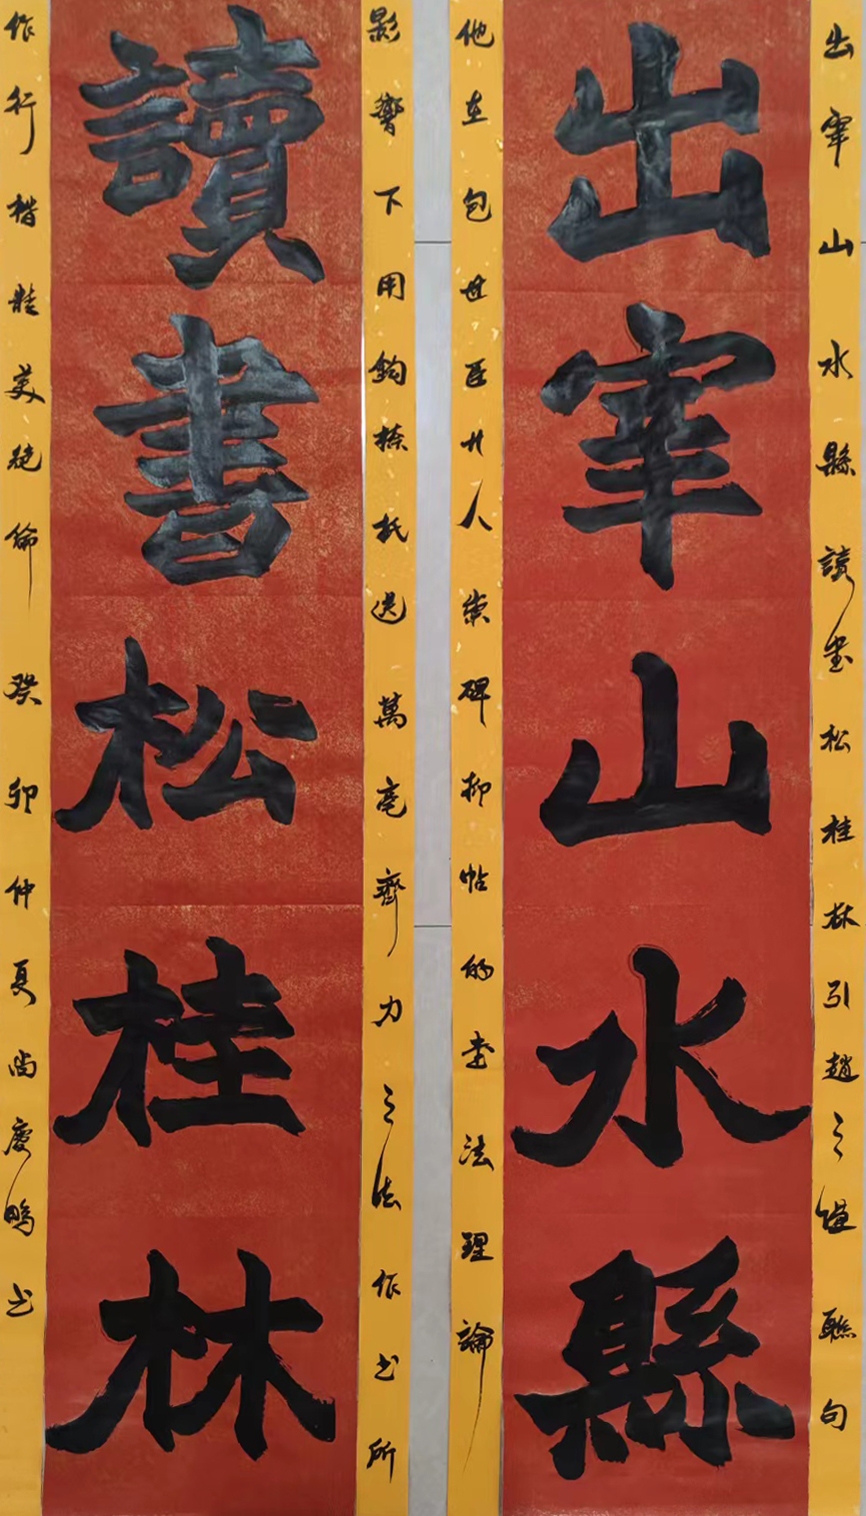 出宰山水縣讀書松桂林引趙之谦聯句
出宰山水縣
他在包世臣等人崇碑抑帖的書法理論
影響下用鈎捺抵送萬毫齊力之法作书所
讀書松桂林
作行楷美絕倫 癸卯仲夏尚慶书